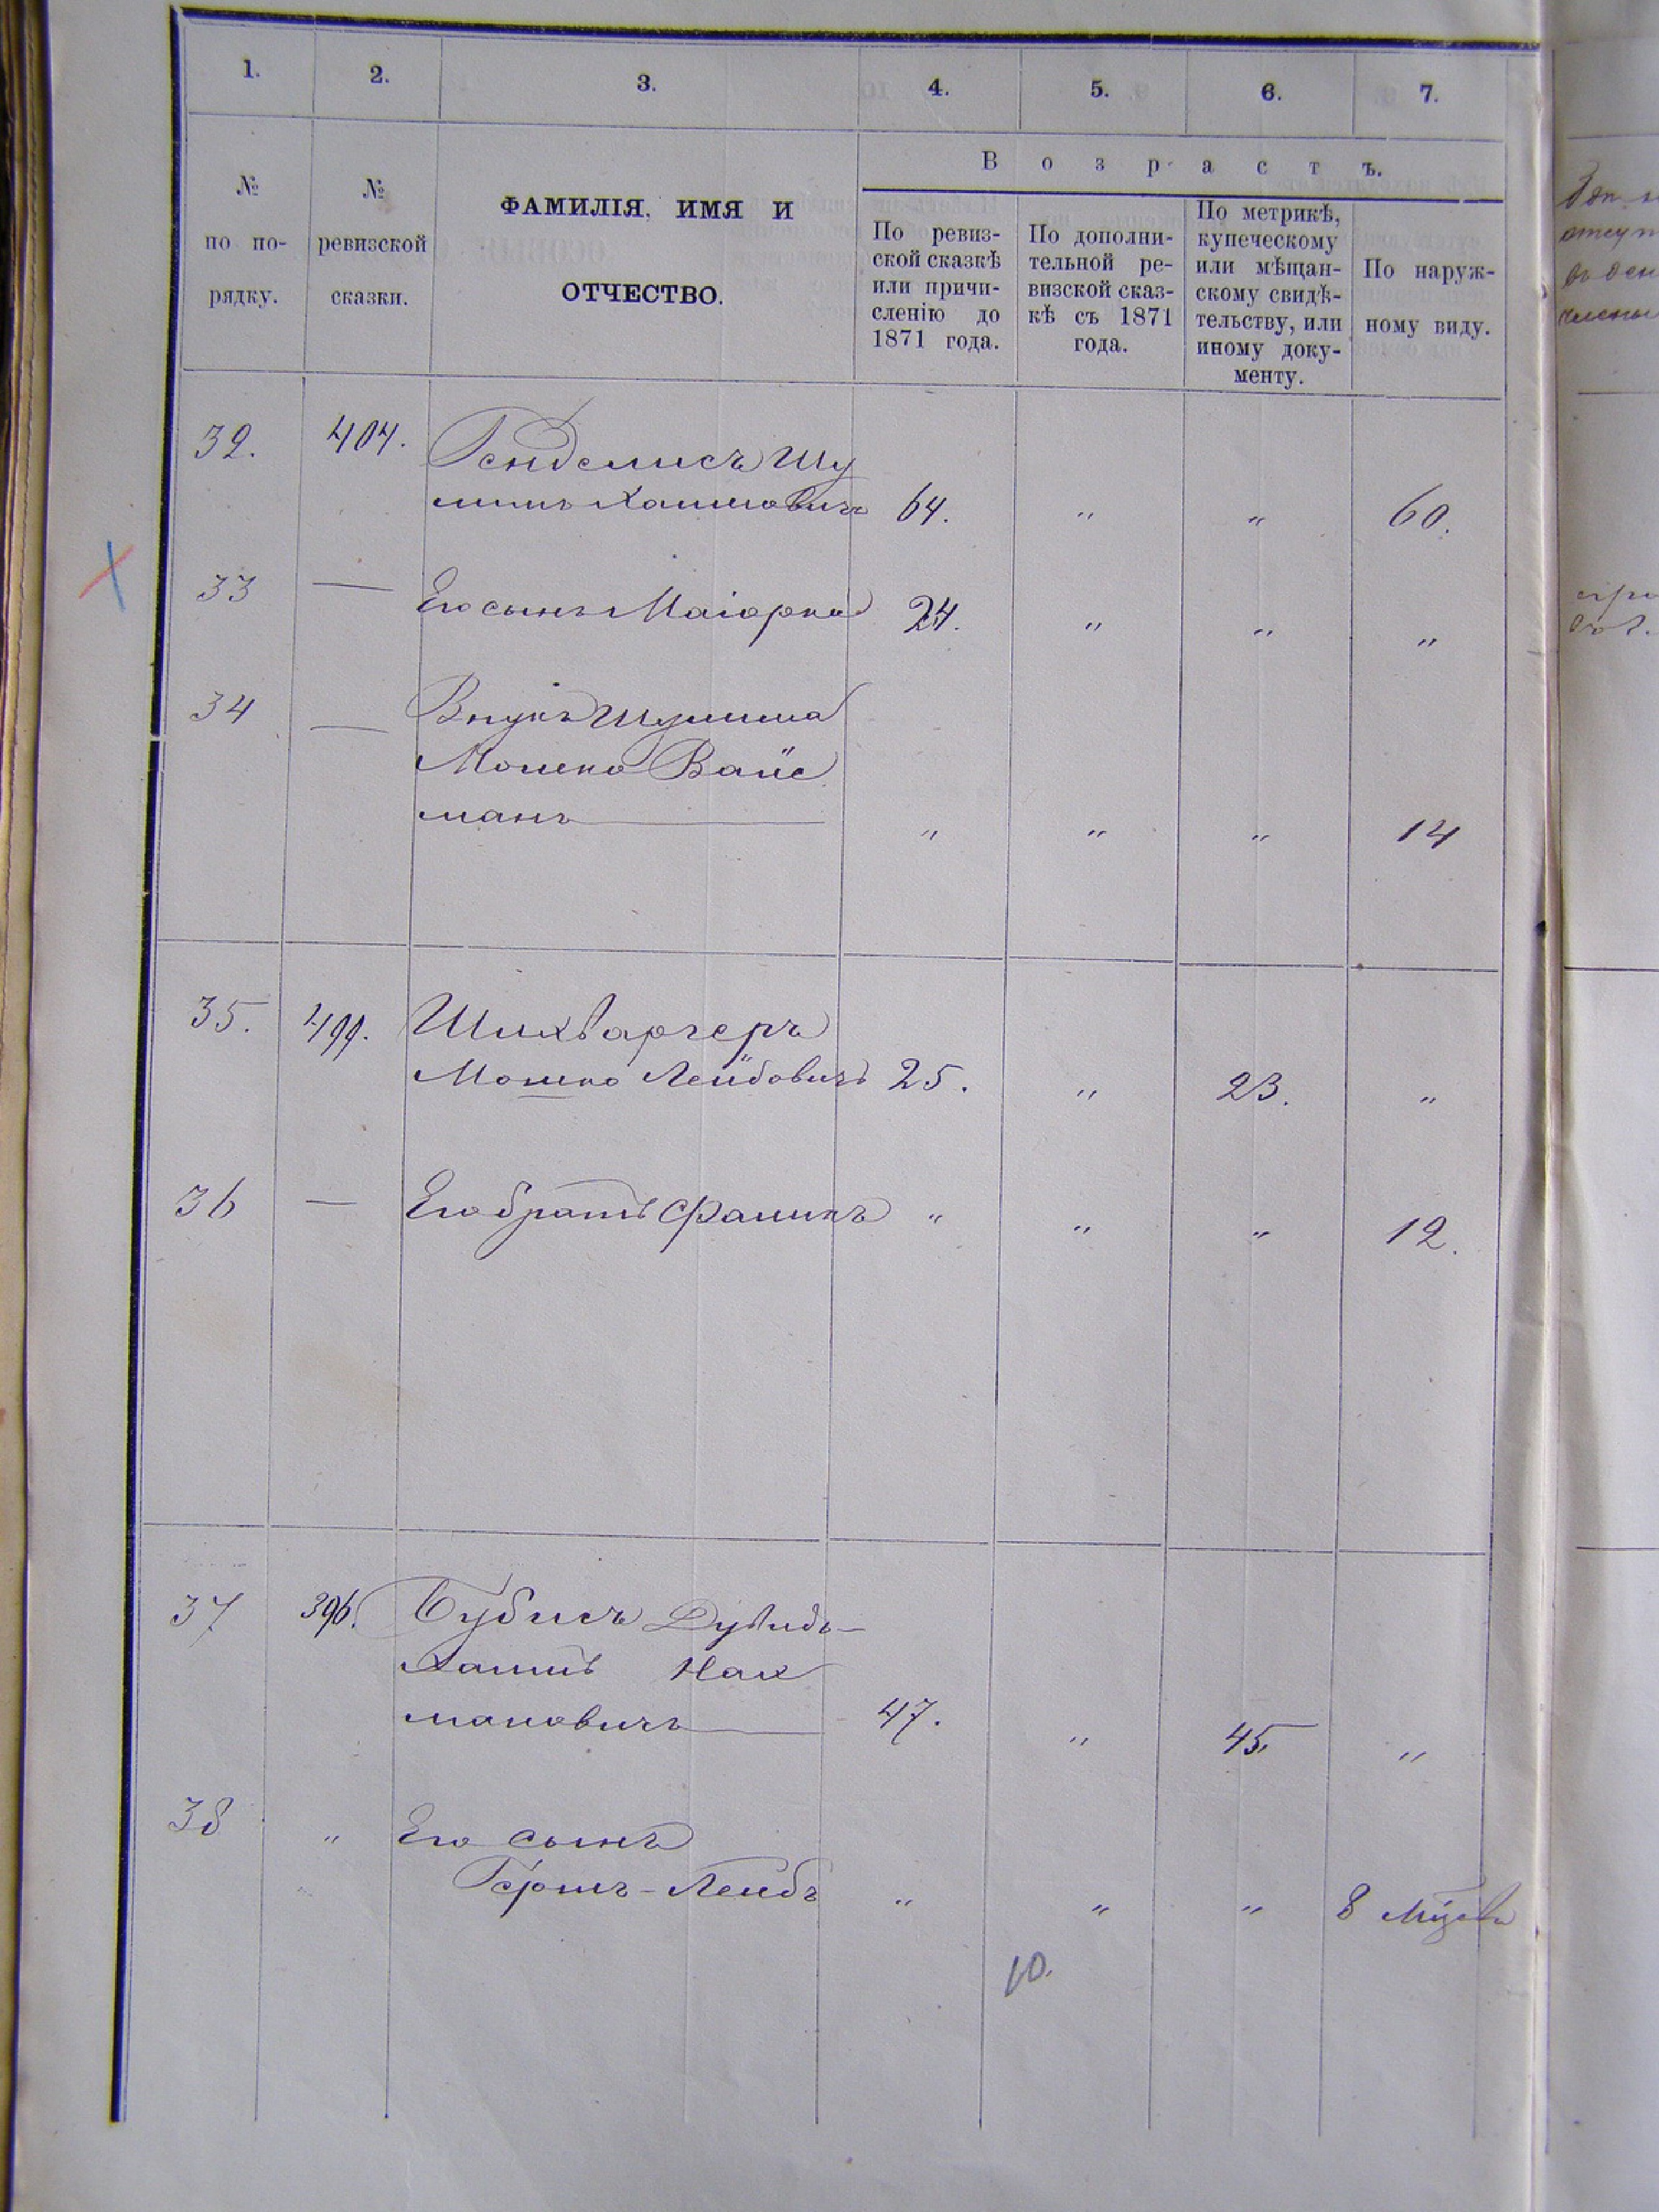 1. 2. 3. 4. 5. 6. 7.
№ по по-рядку.
№ ревизской сказки.
ФАМИЛІЯ, ИМЯ И
ОТЧЕСТВО.
Возрастъ.
По ревиз-
ской сказкѣ
или причи-
сленію до
1871 года.
По дополни-
тельной ре-
визской сказ-
кѣ съ 1871
года.
По метрикѣ,
купеческому
или мѣщан-
скому свидѣ-
тельству, или
иному доку-
менту.
По наруж-
ному виду.
32. 404. Генделисъ Шу
лимъ Хаимовичъ 64. " " 60.
33 — Его сынъ Маіорка 24. " " "
34 — Внукъ Шулима
Мошко Вайс
манъ " " " 14
35. 499.
Мошко Лейбовичъ 25. " 23. "
36 — Его братъ Фаликъ " " " 12.
37 396. Бубисъ Дувидъ-
Хаимъ Нах
мановичъ 47. " 45. "
38 " Его сынъ
Гершъ-Лейбъ " " " 8 мѣсяц
10.